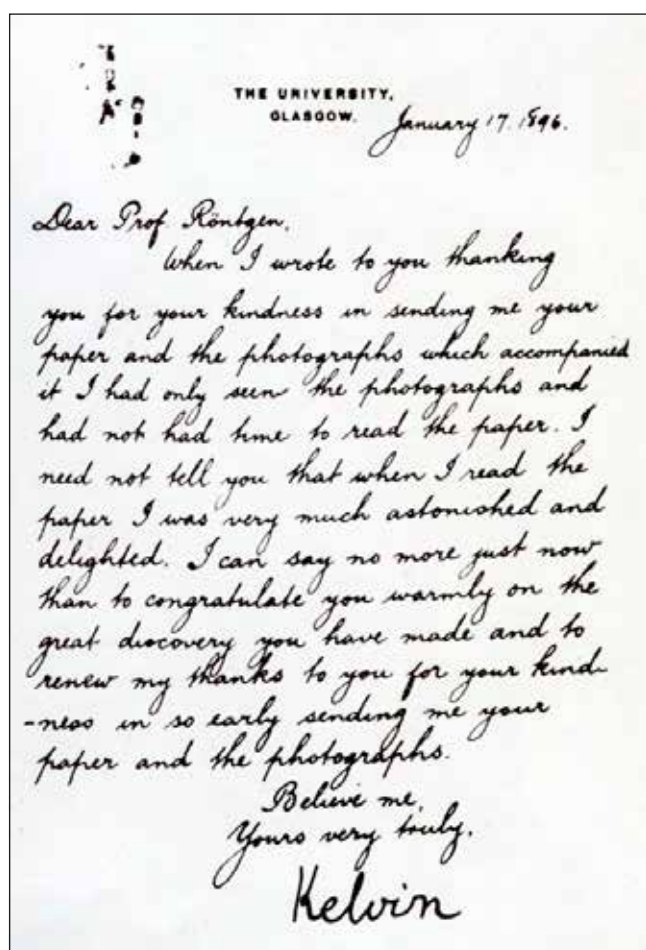 THE UNIVERSITY,
GLASGOW.
January 17. 1896.
Dear Prof. Röntgen,
When I wrote to you thanking
you for your kindness in sending me your
paper and the photographs which accompanied
it I had only seen the photographs and
had not had time to read the paper. I
need not tell you that when I read the
paper I was very much astonished and
delighted. I can say no more just now
than to congratulate you warmly on the
great discovery you have made and to
renew my thanks to you for your kind-
-ness in so early sending me your
paper and the photographs.
Believe me,
Yours very truly,
Kelvin